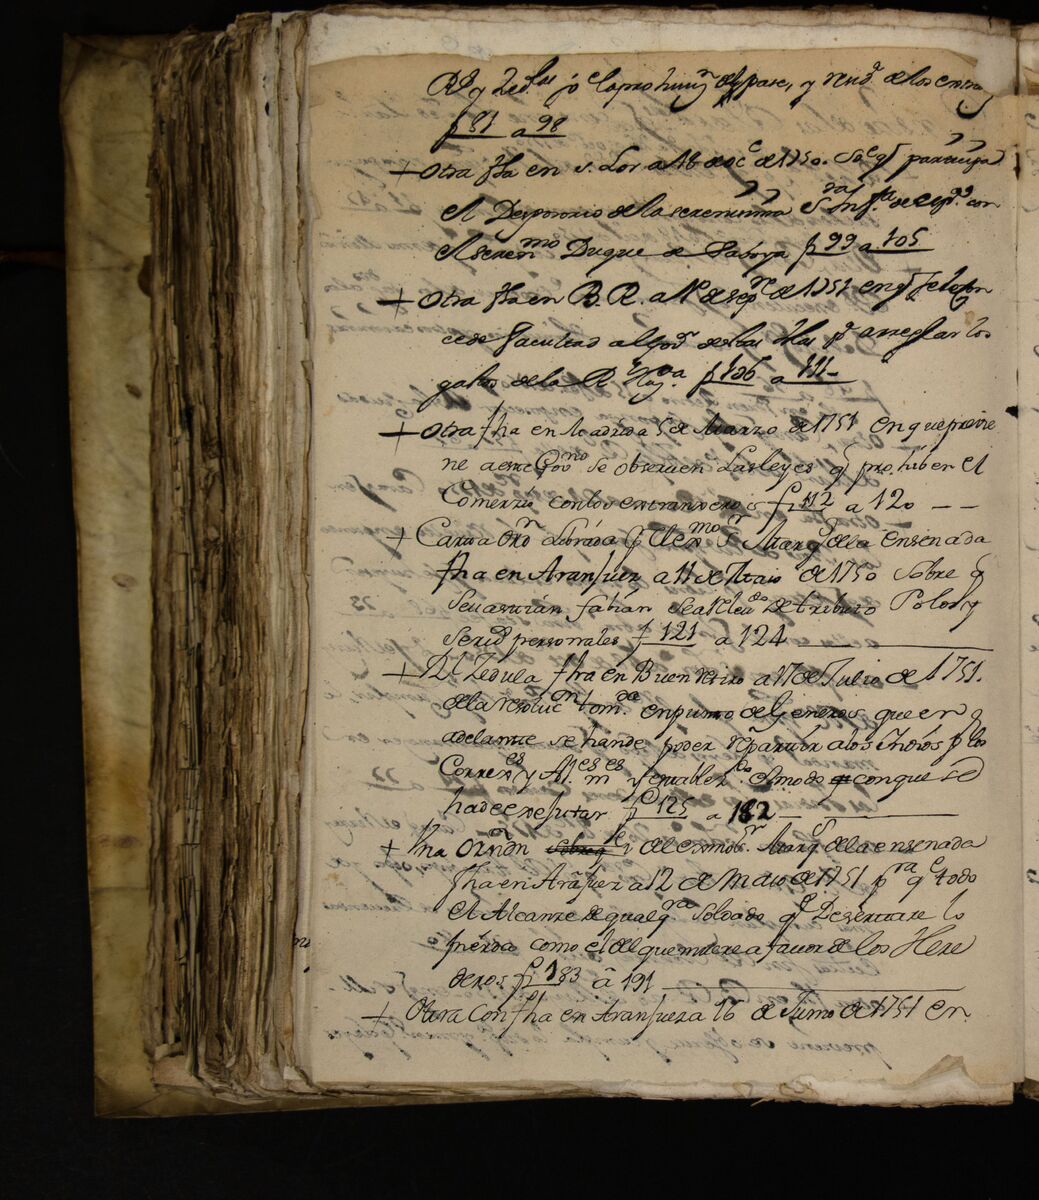 f 81 a 98
+ Otra fha en S. Lor.o a 16 de oc.e de 1750. So.e q.e participa
el Desposorio de la serenissima S.ra Inf.ta de esp.a con
el seren.mo Duque de Saboya f 99 a 105
+ Otra fha en B. R. a 1.o de sep.re de 1751 en q.e
cede facultad al Gov.r de estas Yslas p.a arreglar los
gastos de la R.l Haz.da f 106 a 111-
+ Otra fha en Madrid a 5 de Marzo de 1751 en que previe
ne a este Gov.no se observen Las leyes q.e prohiben el
Comerzio con los extranxeros f 112 a 120 - -
+ Carta Orn Librada p.r el ex.mo S.r Marq.s de la ensenada
fha en Aranjuez a 11 de Maio de 1750 sobre q.e
Sevastian fabian sea Relev.do de tributo Polos y
serv.s personales f 121 a 124
+ R.l Zedula fha en Buen Retiro a 17 de Julio de 1751.
de la resoluc.on tom.da en punto de Generos que en
adelante se han de poder repartir a los Indios p.r los
Correx.es y Al.es m.es y establez.do el modo con que se
ha de executar f 125 a 182
+ Una Orñ del exmo S.r Marq.s de la ensenada
fha en Aranjuez a 12 de Maio de 1751 p.ra q.e todo
el Alcanze de qualq.ra Soldado q.e Desertare lo
pierda como el del que muere a favor de los Here
deros f 183 a 191
+ Otra Con fha en Aranjuez a 16 de Junio de 1751 en